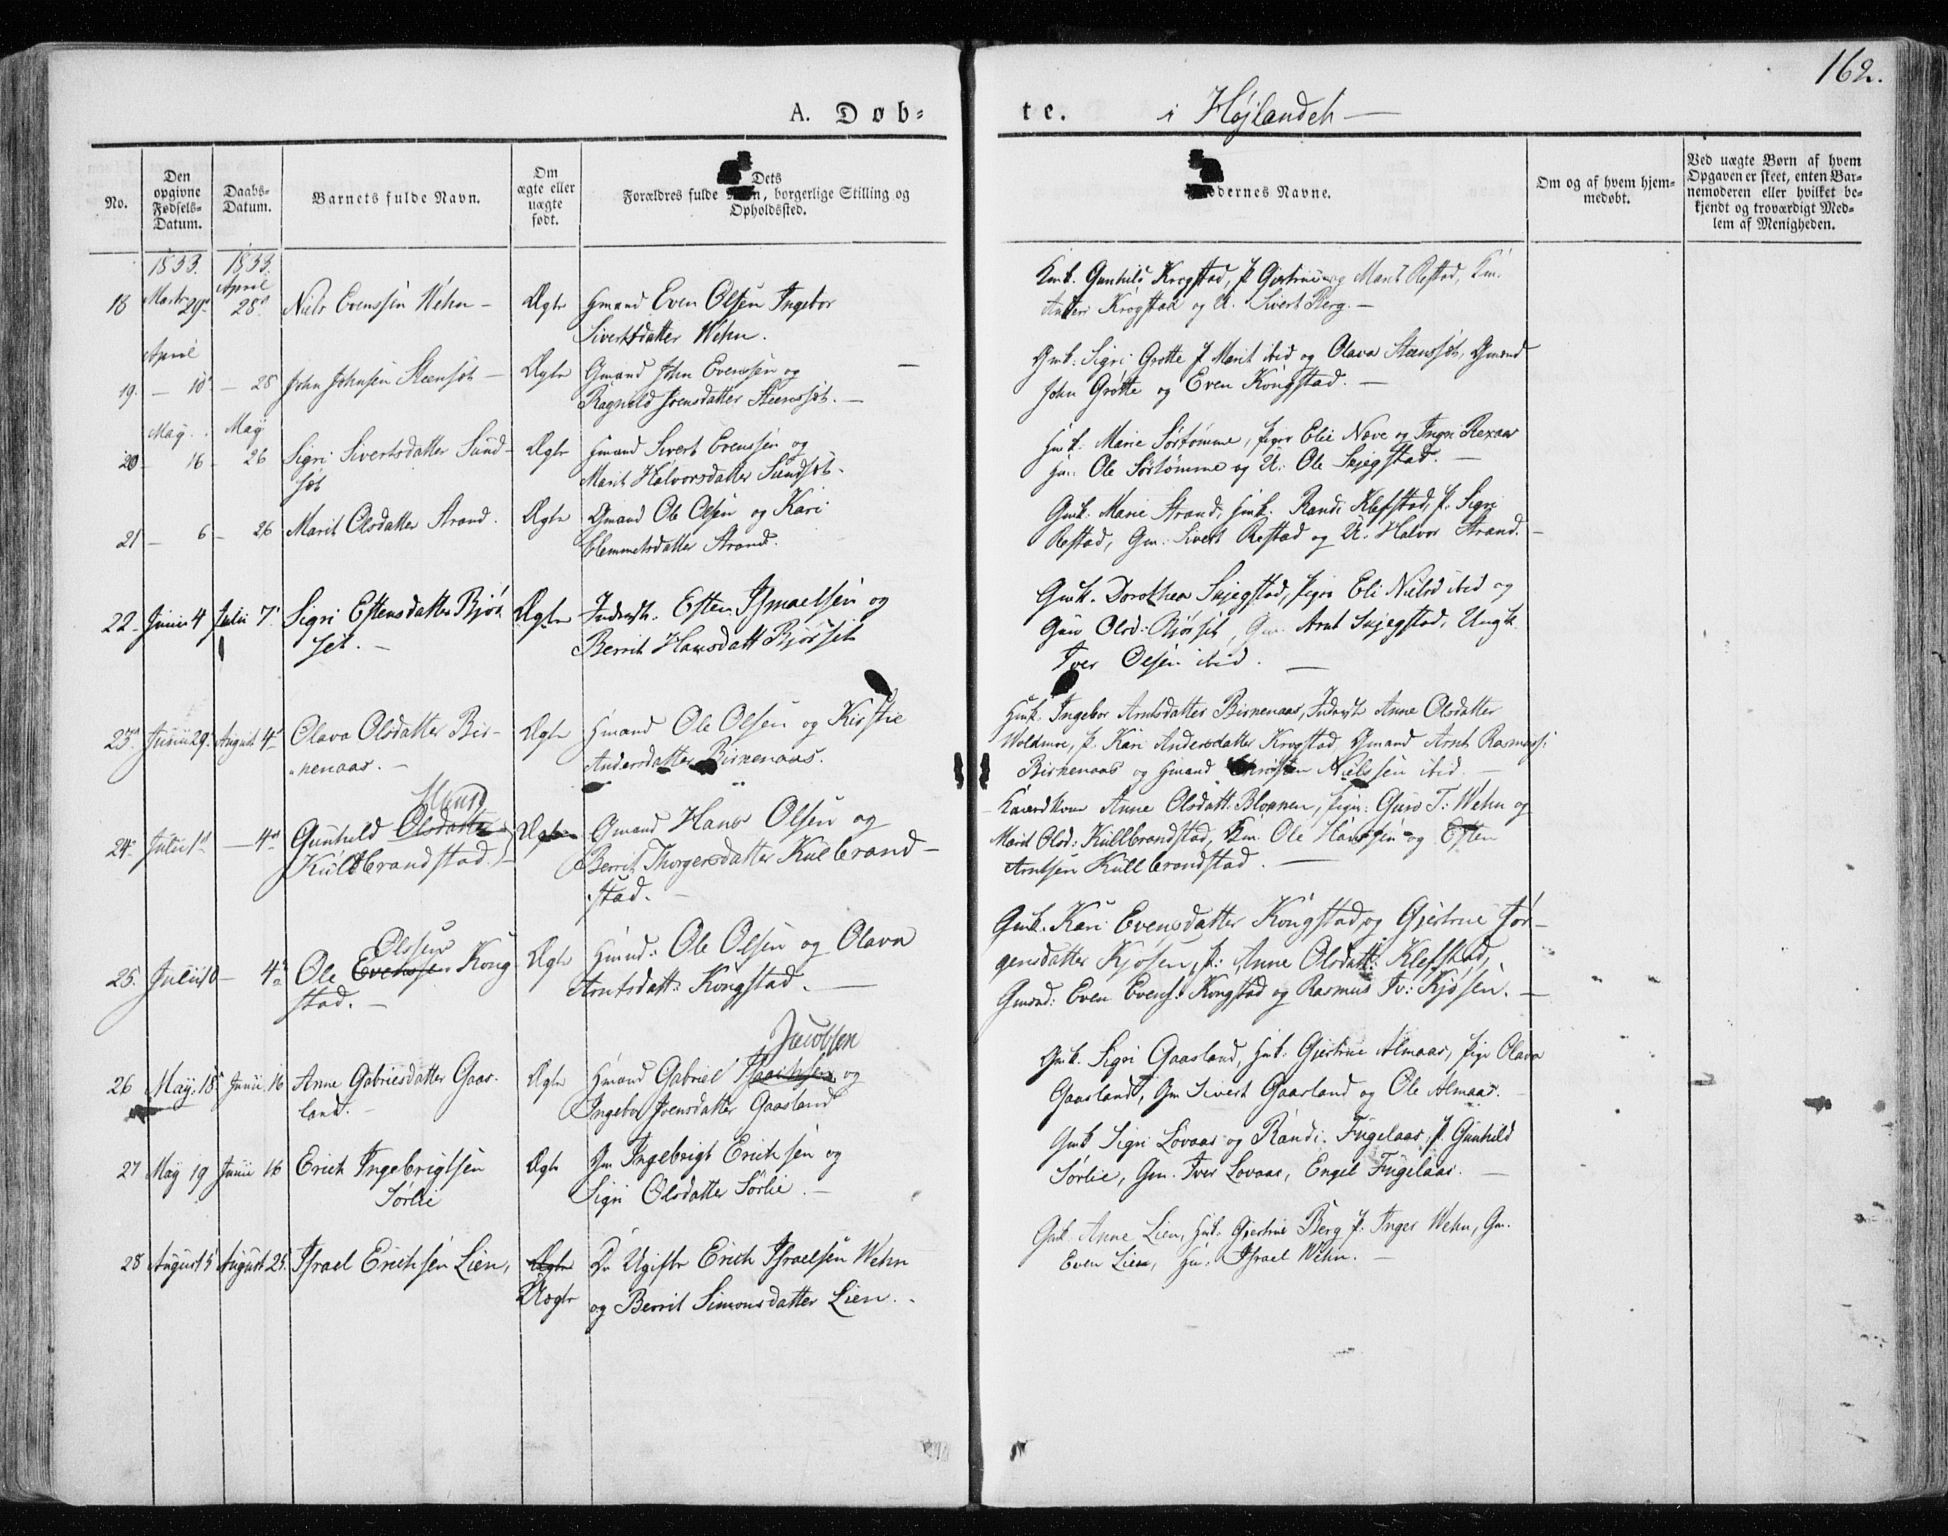 162.
A. Døb-
te. i Højlandeh
No.
Den opgivne Fødsels-Datum.
Daabs-Datum.
Barnets fulde Navn.
Om ægte eller uægte født.
Dets
Forældres fulde Navn, borgerlige Stilling og
Opholdssted.
Faddernes Navne.
Om og af hvem hjem-
medøbt.
Ved uægte Børn af hvem
Opgaven er skeet, enten Bar-
nemoderen eller hvilket be-
kjendt og troværdigt Med-
lem af Menigheden.
1833. 1833.
18 Marts 29 April 28 Niels Evenssen Wehn - Ægte Hmand Even Olsen Ingebor
Sivertsdatter Wehn.
Kmk. Gunhild Krogstad, P. Gjertrue og Marit Røstad, Km.
Anders Krogstad og U. Sivert Berg. -
April
19. - 10 - 28 John Johnsen Steensøt - Ægte Gmand John Evenssen og
Ragnild Joensdatter Steensøt. -
Gmk: Sigri Grøtte P. Marit ibid og Olava Steensøt, Gmand
John Grøtte og Even Kongstad. -
May May
20 - 16 - 26 Sigri Sivertsdatter Sund-
søt
Ægte Hmand Sivert Evenssen og
Marit Halvorsdatter Sundsøt.
Hmk. Marie Sørtømme, Piger Elie Næve og Ingri
Hm: Ole Sørtømme og U: Ole Skjegstad. -
21 - 6 - 26 Marit Olsdatter Strand. Ægte Gmand Ole Olsen og Kari
Clemmetsdatter Strand.
Gmk. Marie Strand, Hmk. Randi Klefstad, P. Sigri
Røstad, Gm: Sivert Røstad og U. Halvor Strand. -
22 - Junii 4 Julii 7 Sigri Estensdatter Bjør-
set. -
Ægte Inderst. Esten Ismaelsen og
Berrit Hansdatt Bjørset
Gmk. Dorothea Skjegstad, Pigen Eli Nielsd ibid og
Guro Olsd: Bjørset, Gm. Arnt Skjegstad, Ungk.
Iver Olsen ibid. -
23 Junii 29 August 4 Olava Olsdatter Bir-
kenaas. -
Ægte Hmand Ole Olsen og Kirstie
Andersdatter Birkenaas.
Hmk. Ingebor Arntsdatter Birkenaas, Inderst Anne Olsdatter
Woldmoe, P. Kari Andersdatter Krogstad, Gmand Arnt Rasmuss:
Birkenaas og Hmand Christen Nielssen ibid. -
24 Julii 1 - 4 Gunhild Olsdatter Hansd
Kulbrandstad.
Ægte Gmand Hans Olsen og
Berrit Thorgersdatter Kulbrand-
stad. -
Anne Olsdatt: Bloknen, Pigen: Guro T: Wehn og
Marit Olsd: Kullbrandstad, Km. Ole Hanssen og Esten
Arntsen Kullbrandstad. -
25. Julii 10 - 4 Ole Evenssen Olssen Kong-
stad. -
Ægte Hmand: Ole Olsen og Olava
Arntsdatt: Kongstad. -
Gmk. Kari Evensdatter Kongstad og Gjertrue Jør-
gensdatter Kjøsen, P: Anne Olsdatt: Klefstad,
Gmand: Even Evens: Kongstad og Rasmus Iv: Kjøsen. -
26 May 18 Junii 16 Anne Gabrielsdatter Gaas-
land. -
Ægte Hmand Gabriel Isachsen Jacobsen og
Ingebor Joensdatter Gaasland
Gmk. Sigri Gaasland, Hmk. Gjertrue Almaas, Pige Olava
Gaasland, Gm Sivert Gaasland og Ole Almaas.
27 May 19 Junii 16 Erich Ingebrigtsen
Sørlie
Ægte Gm Ingebrigt Erichsen og
Sigri Olsdatter Sørlie. -
Gmk Sigri Lovaas og Randi Fuglaas, P. Gunhild
Sørlie, Gm. Iver Lovaas, Engel Fuglaas. -
28 August 5 August 25. Israel Erichsen Lien, Ægte
Uægte
De Ugifte Erich Israelsen Wehn
og Berrit Simonsdatter Lien. -
Gmk. Anne Lien, Hmk. Gjertrue Berg P. Inger Wehn, Gm.
Even Lien, Hm. Israel Wehn. -